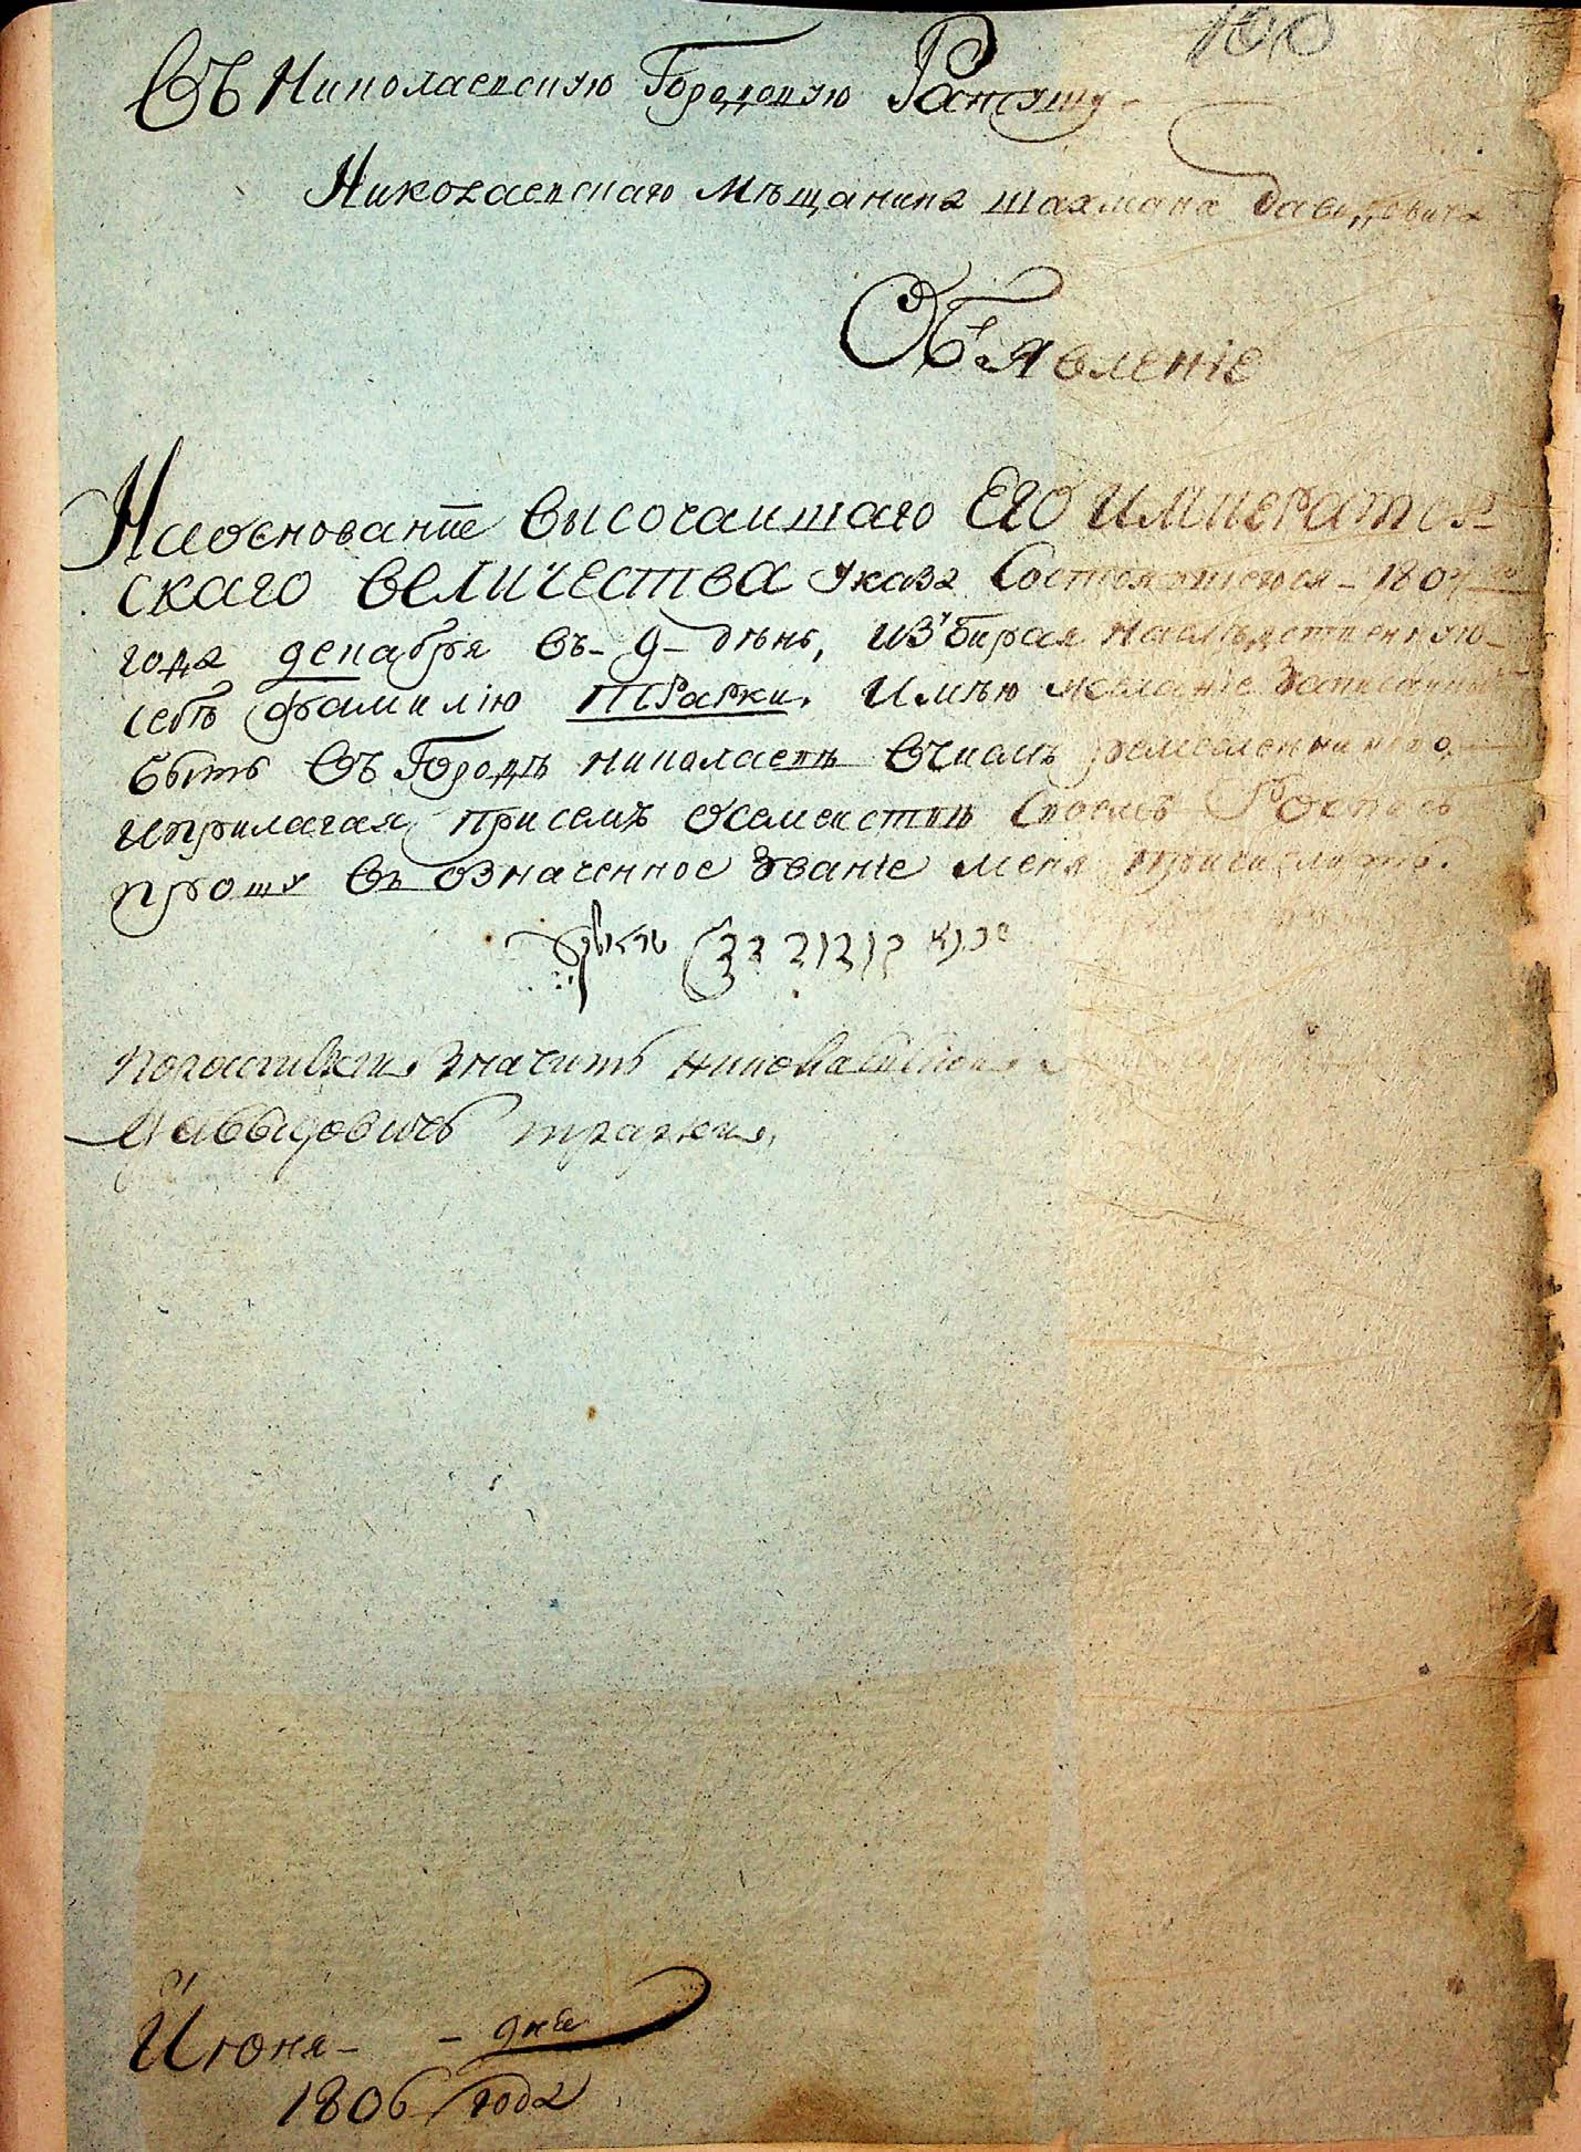 100
Въ Николаевскую Городскую Ратушу
Николаевскаго Мѣщанина Шахмана Давидовича
Объявленіе
На основаніе высочаишаго Его Император-
скаго величества указа Состоявшегося 1804го
года декабря въ 9 день, избирая наслѣдственную
себѣ фамилію Трарки. Имѣю желаніе записанным
быть въ Городѣ Николаевѣ вчислѣ ремесленниковъ,
иприлагая присемъ осемействѣ своемъ Роспись
прошу въ означенное званіе меня причислить.
значитъ
Давыдовичъ трарки,
Июня - - дня
1806 года